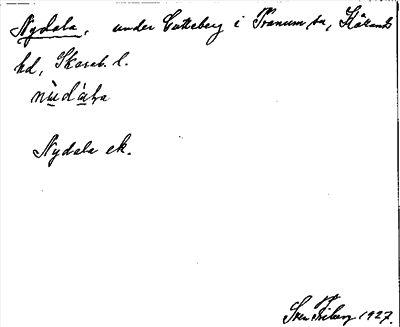 Nydala, under Cutteberg i Tranum sn, Kålands
hd, Skarab. l.
nỳdàla
Nydala ek.
Sven Friberg 1927.